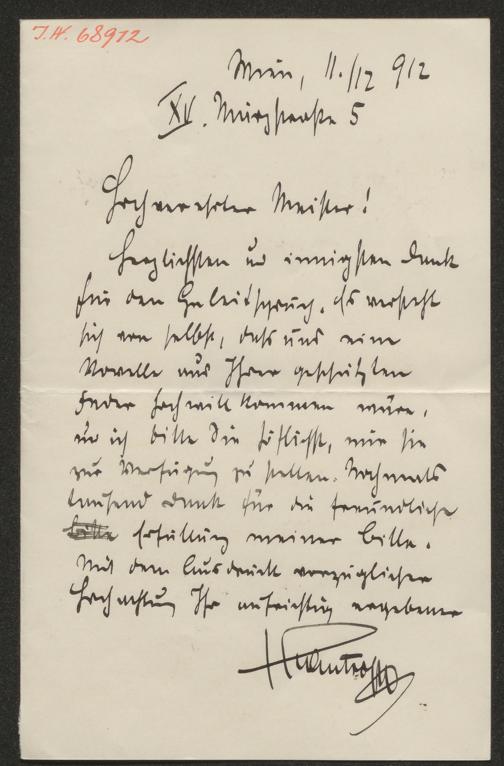 I.N. 68972
Wien, 11./12 912
XV. Mürzstraße 5
Hochverehrter Meister!
Herzlichsten u innigsten Dank
für den Geleitspruch. Es versteht
sich von selbst, dass uns eine
Novelle aus Ihrer geschätzten
Feder hochwillkommen wäre,
u ich bitte Sie höflichst, mir sie
zur Verfügung zu stellen. Nochmals
tausend Dank für die freundliche
Erfüllung meiner Bitte.
Mit dem Ausdruck vorzüglicher
Hochachtung Ihr aufrichtig ergebener